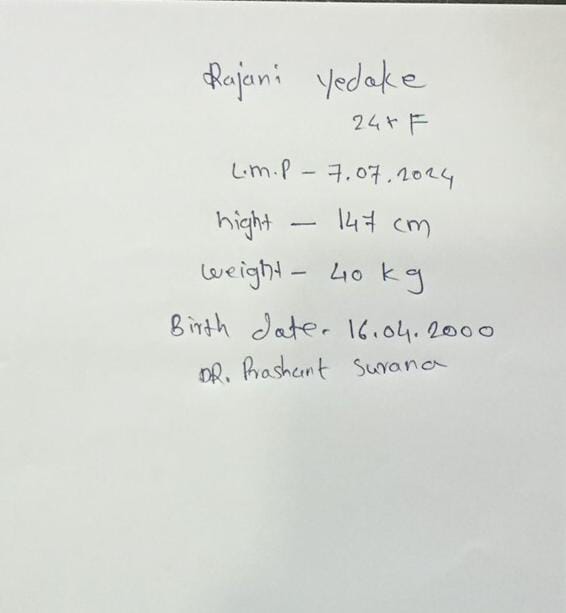 Rajani Yedake
24 Y F
L.M.P – 7.07.2024
hight – 147 cm
weight – 40 kg
Birth date. 16.04.2000
DR. Prashant Surana